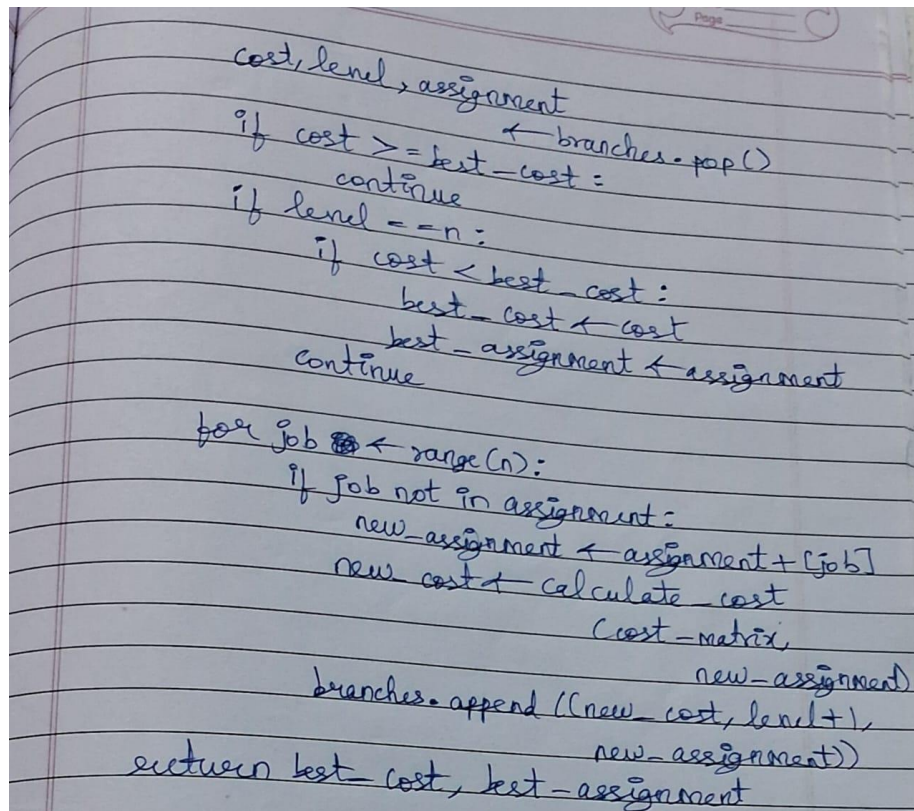 Page
cost, level, assignment
← branches.pop()
if cost >= best_cost:
continue
if level == n:
if cost < best_cost:
best_cost ← cost
best_assignment ← assignment
continue
for job ← range(n):
if job not in assignment:
new_assignment ← assignment + [job]
new_cost ← calculate_cost
(cost_matrix,
new_assignment)
branches.append ((new_cost, level+1,
new_assignment))
return best_cost, best_assignment